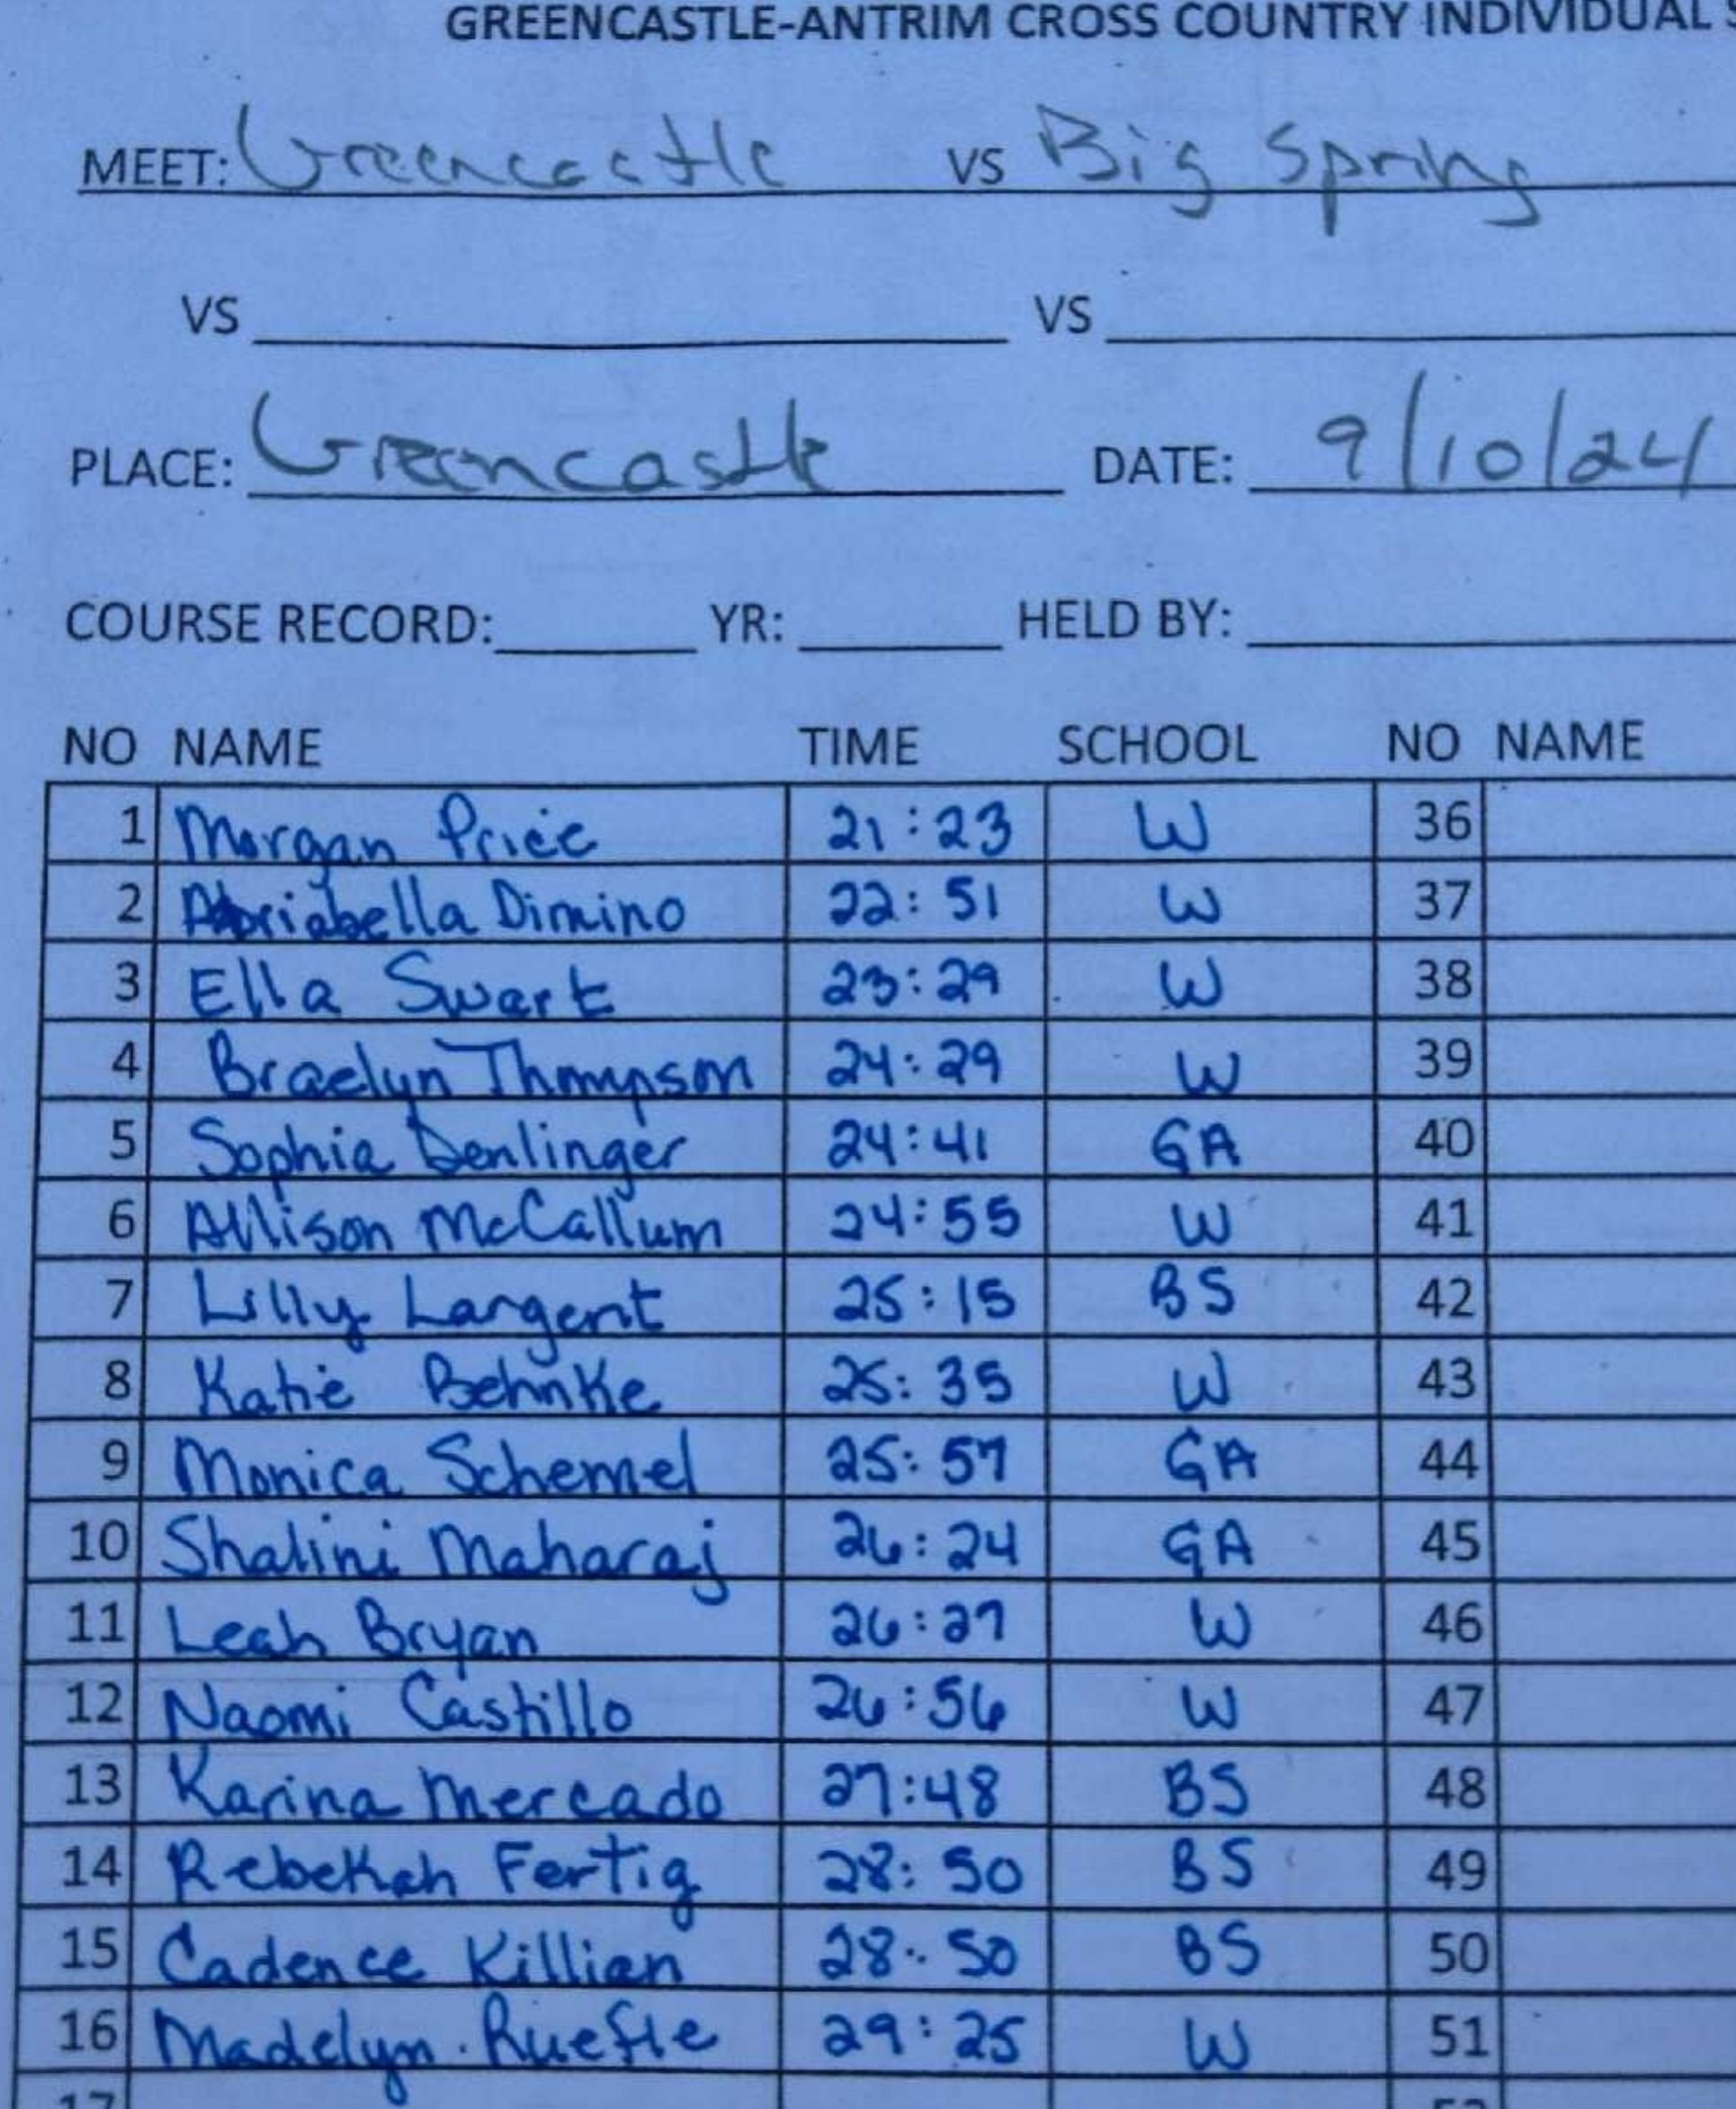 GREENCASTLE-ANTRIM CROSS COUNTRY INDIVIDUAL
MEET: Greencastle VS Big Spring
VS VS
PLACE: Greencastle DATE: 9/10/24
COURSE RECORD: YR: HELD BY:
NO NAME TIME SCHOOL NO NAME
1 Morgan Price 21:23 W 36
2 Dimino 22:51 W 37
3 Ella Swart 23:29 W 38
4 Braelyn Thompson 24:29 W 39
5 Sophia Denlinger 24:41 GA 40
6 Allison McCallum 24:55 W 41
7 Lilly Largent 25:15 BS 42
8 Katie Behnke 25:35 W 43
9 Monica Schemel 25:57 GA 44
10 Shalini Maharaj 26:24 GA 45
11 Leah Bryan 26:27 W 46
12 Naomi Castillo 26:56 W 47
13 Karina Mercado 27:48 BS 48
14 Rebekah Fertig 28:50 BS 49
15 Cadence Killian 28:50 BS 50
16 Madelyn Ruefle 29:25 W 51
17